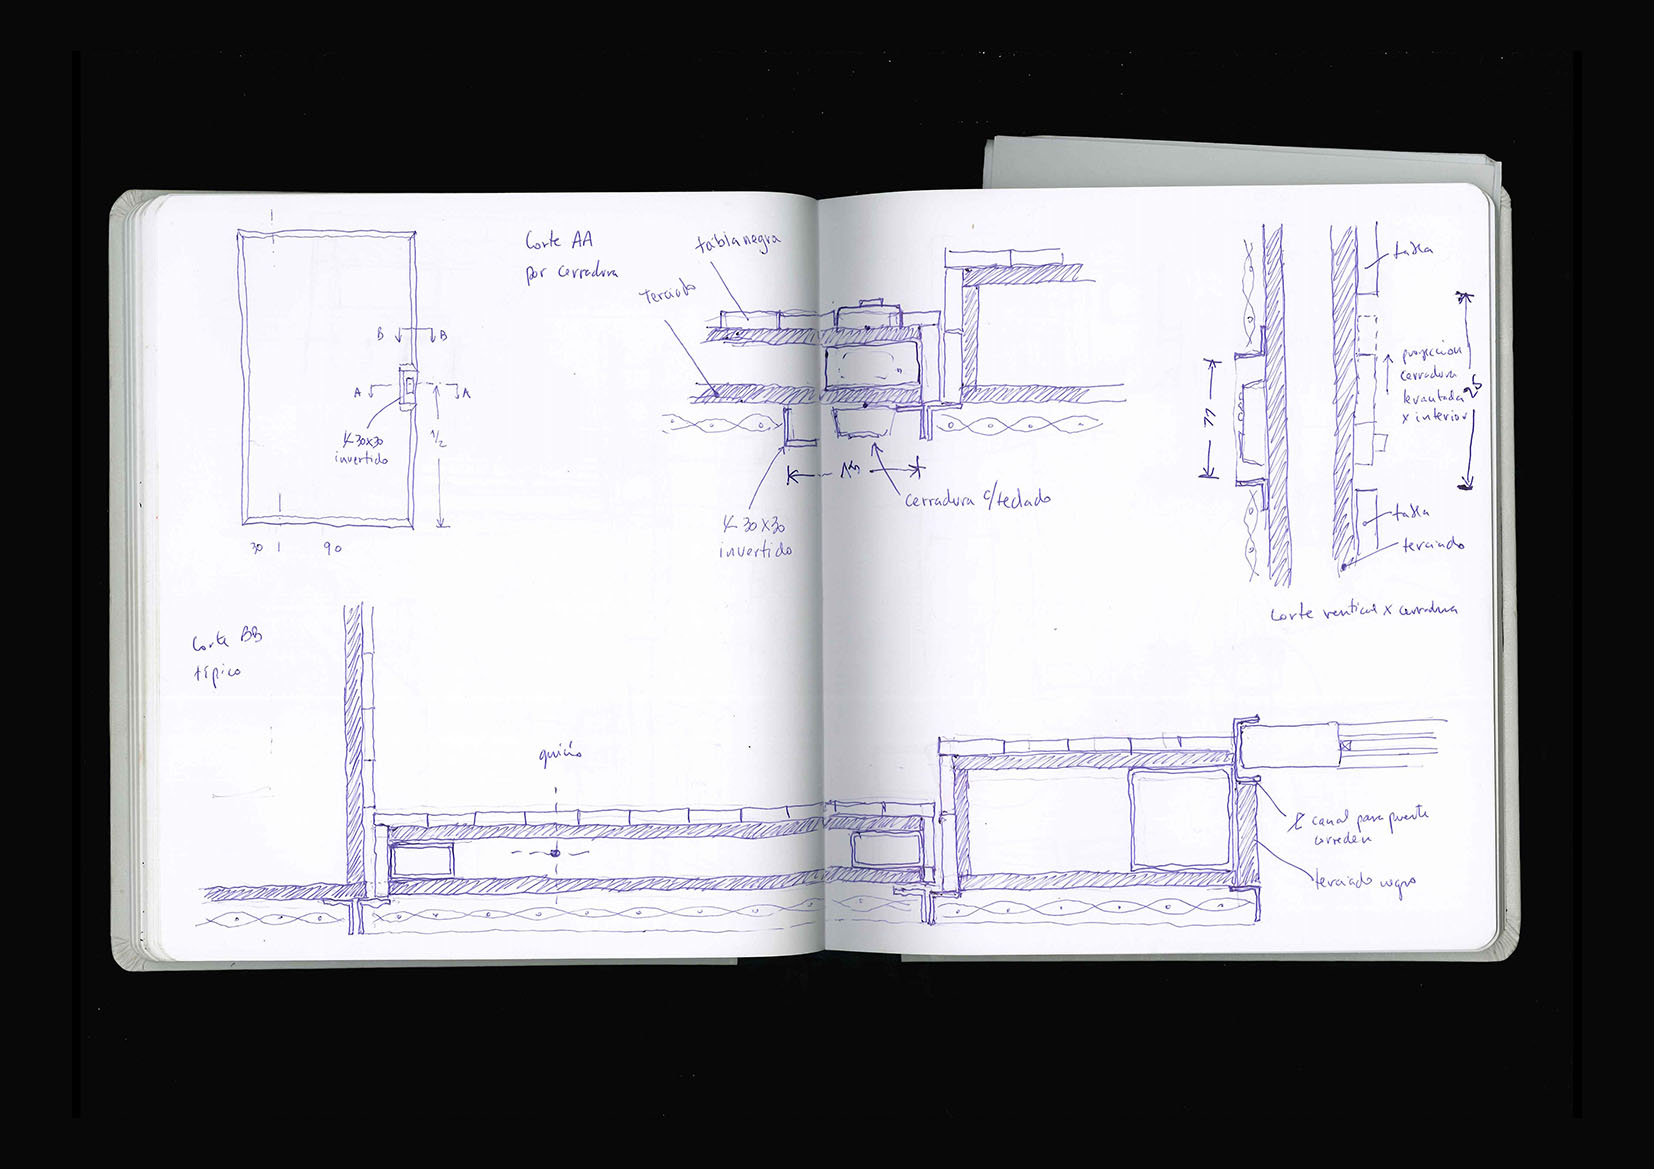 B
B
A
A
∠ 30x30
invertido
1/2
30
90
Corte AA
por cerradura
tabla negra
terciado
∠ 30x30
invertido
cerradura c/teclado
tabla
proyeccion
cerradura
levantada
x interior
25
tabla
terciado
corte vertical x cerradura
Corte BB
típico
quicio
canal para puerta
corredera
terciado negro